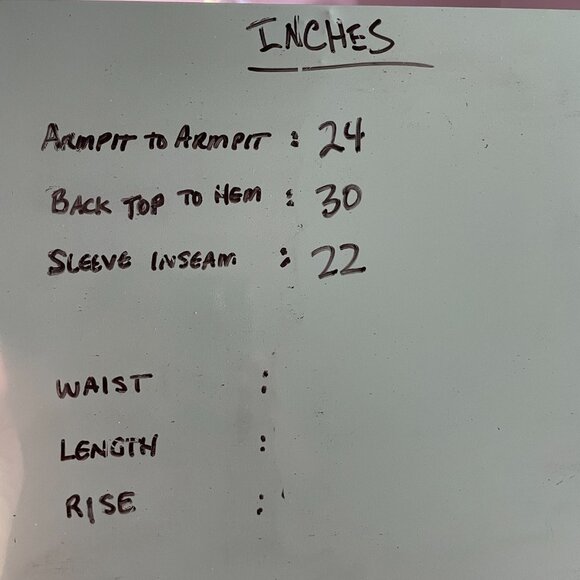 INCHES
ARMPIT TO ARMPIT : 24
BACK TOP TO HEM : 30
SLEEVE INSEAM : 22
WAIST :
LENGTH :
RISE :